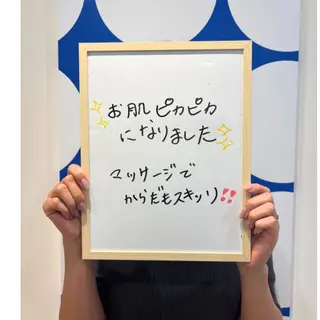 お肌ピカピカ
になりました
マッサージで
からだもスキッリ!!